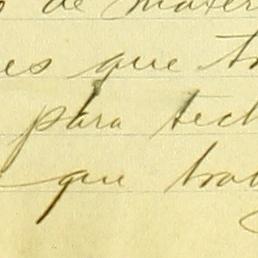 de mater
es que tr
para tech
que trab